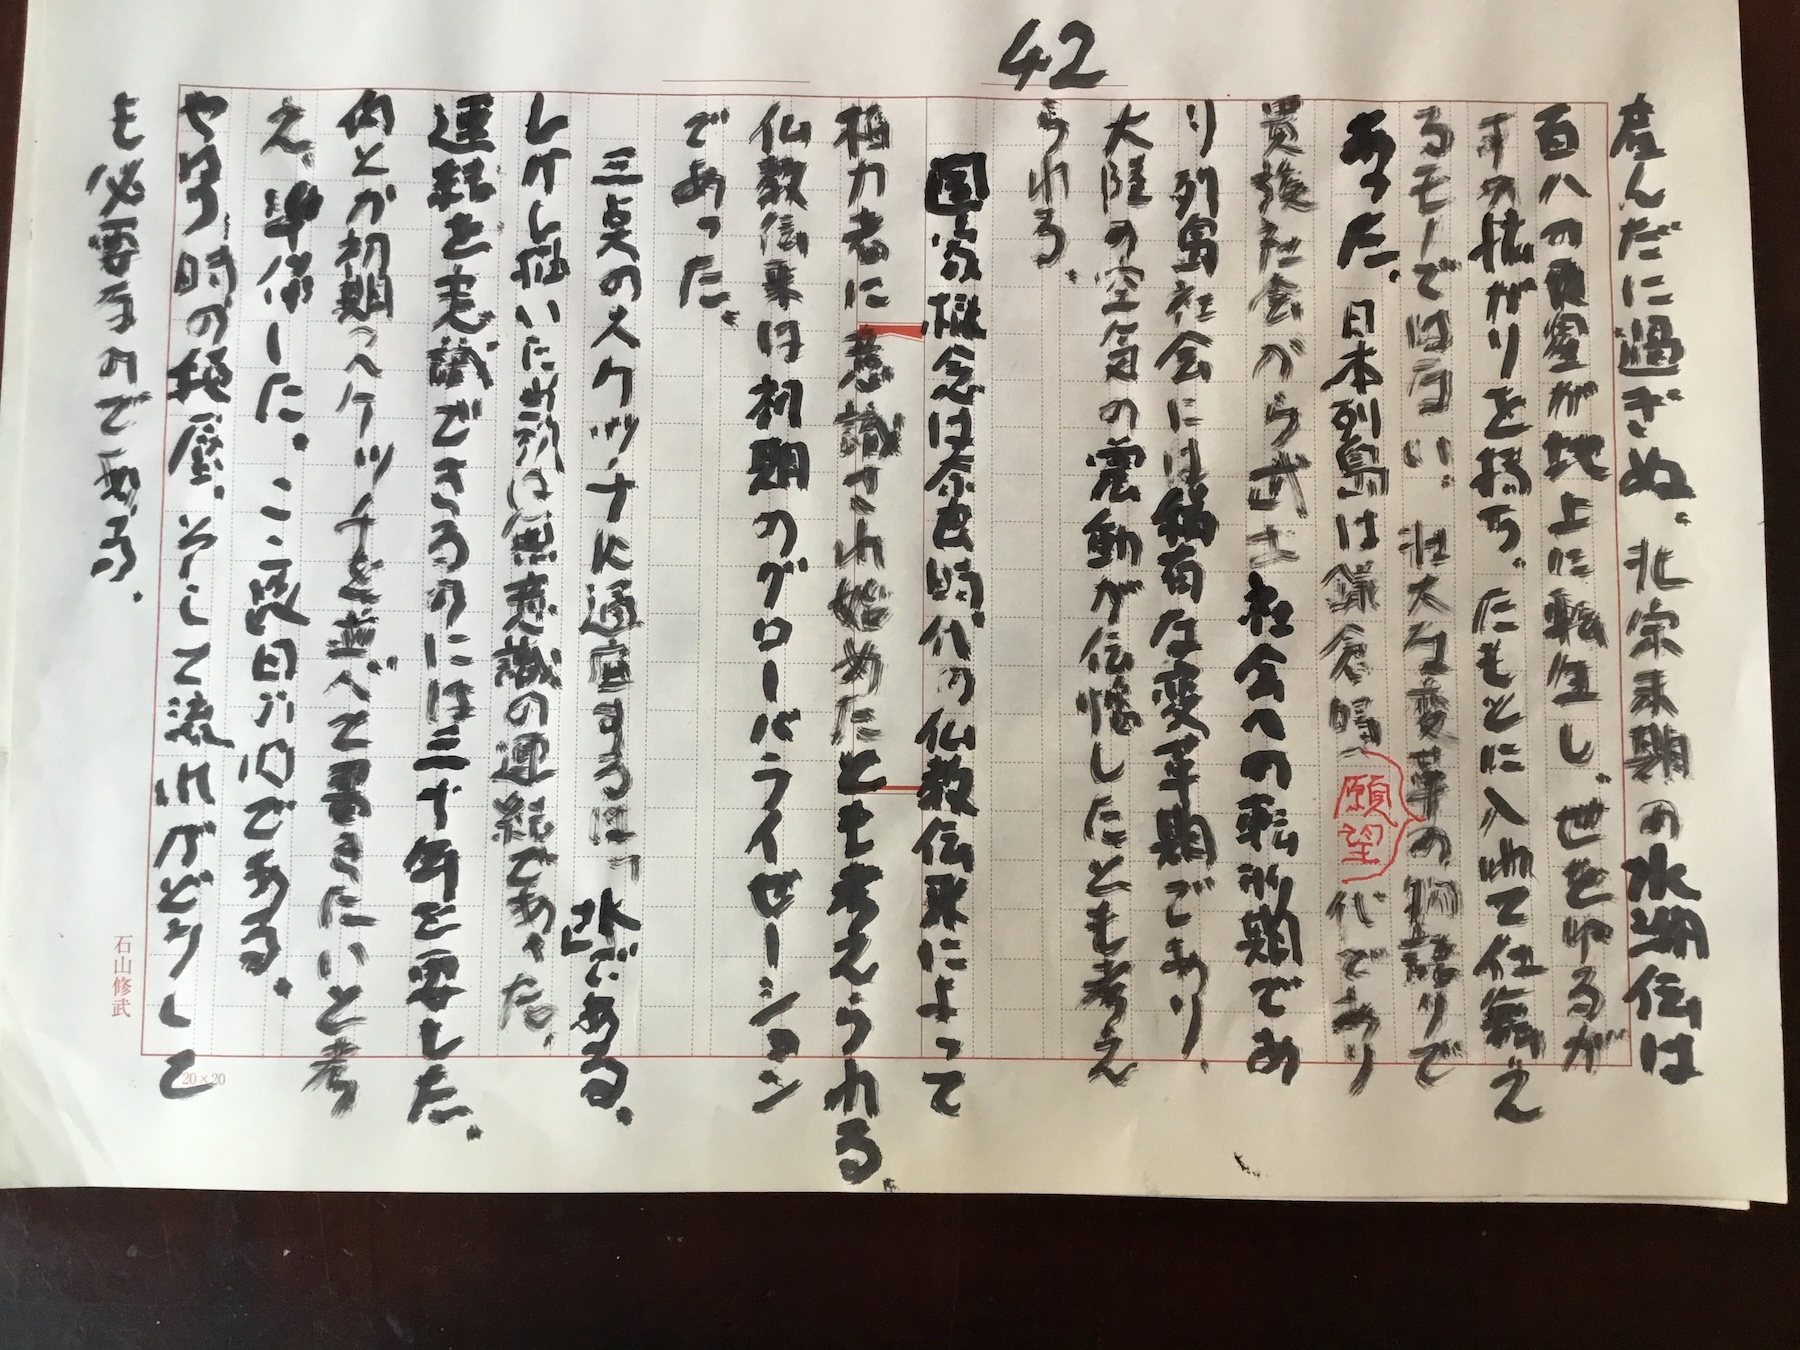 42
産んだに過ぎぬ。北宋末期の水滸伝は
百八の悪霊が地上に転生し、世をゆるが
す の拡がりを持ち、たもとに入れて仕舞え
るモノではない。壮大な変革の物語りで
願望
あった。日本列島は鎌倉時代であり
貴族社会から武士社会への転形期であ
り列島社会には稀有な変革期であり、
大陸の空気の震動が伝播したとも考え
られる。
国家概念は奈良時代の仏教伝来によって
権力者に意識され始めたとも考えられる。
仏教伝来は初期のグローバライゼーション
であった。
三点のスケッチに通底するは「水」である。
しかし描いた当初は無意識の連続であった。
連続を意識できるのには三十年を要した。
何とか初期スケッチを並べて書きたいと考
え、準備した。ここ数日 である。
やはり時の 、そして流れがどうして
も必要なのである。
石山修武
20×20